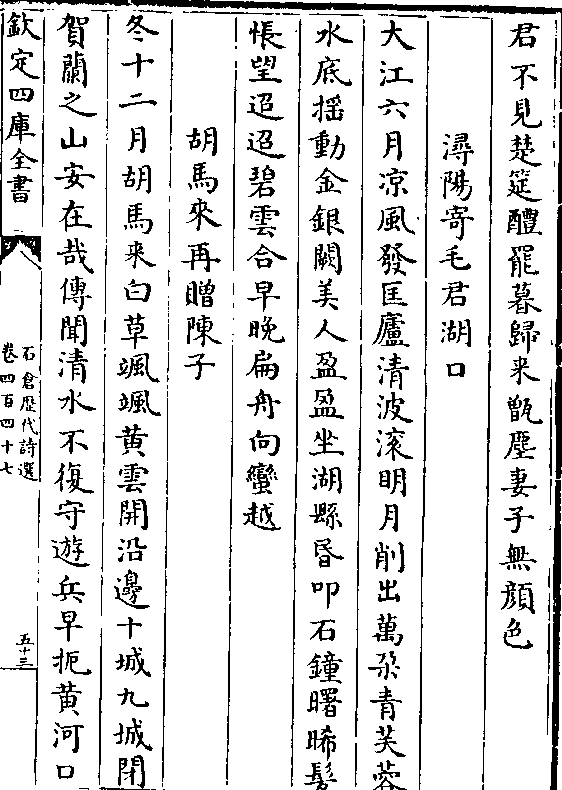 君不見楚筵醴罷暮歸来甑塵妻子無顔色
潯陽寄毛君湖口
大江六月凉風發匡廬清波滚明月削出萬朶青芙蓉
水底揺動金銀闕美人盈盈坐湖縣昏叩石鐘曙晞髪
悵望迢迢碧雲合早晚扁舟向蠻越
胡馬來再贈陳子
冬十二月胡馬来白草颯颯黄雲開沿邊十城九城閉
賀蘭之山安在哉傳聞清水不復守遊兵早扼黄河口
欽定四庫全書
石倉歴代詩選
卷四百四十七
五十三